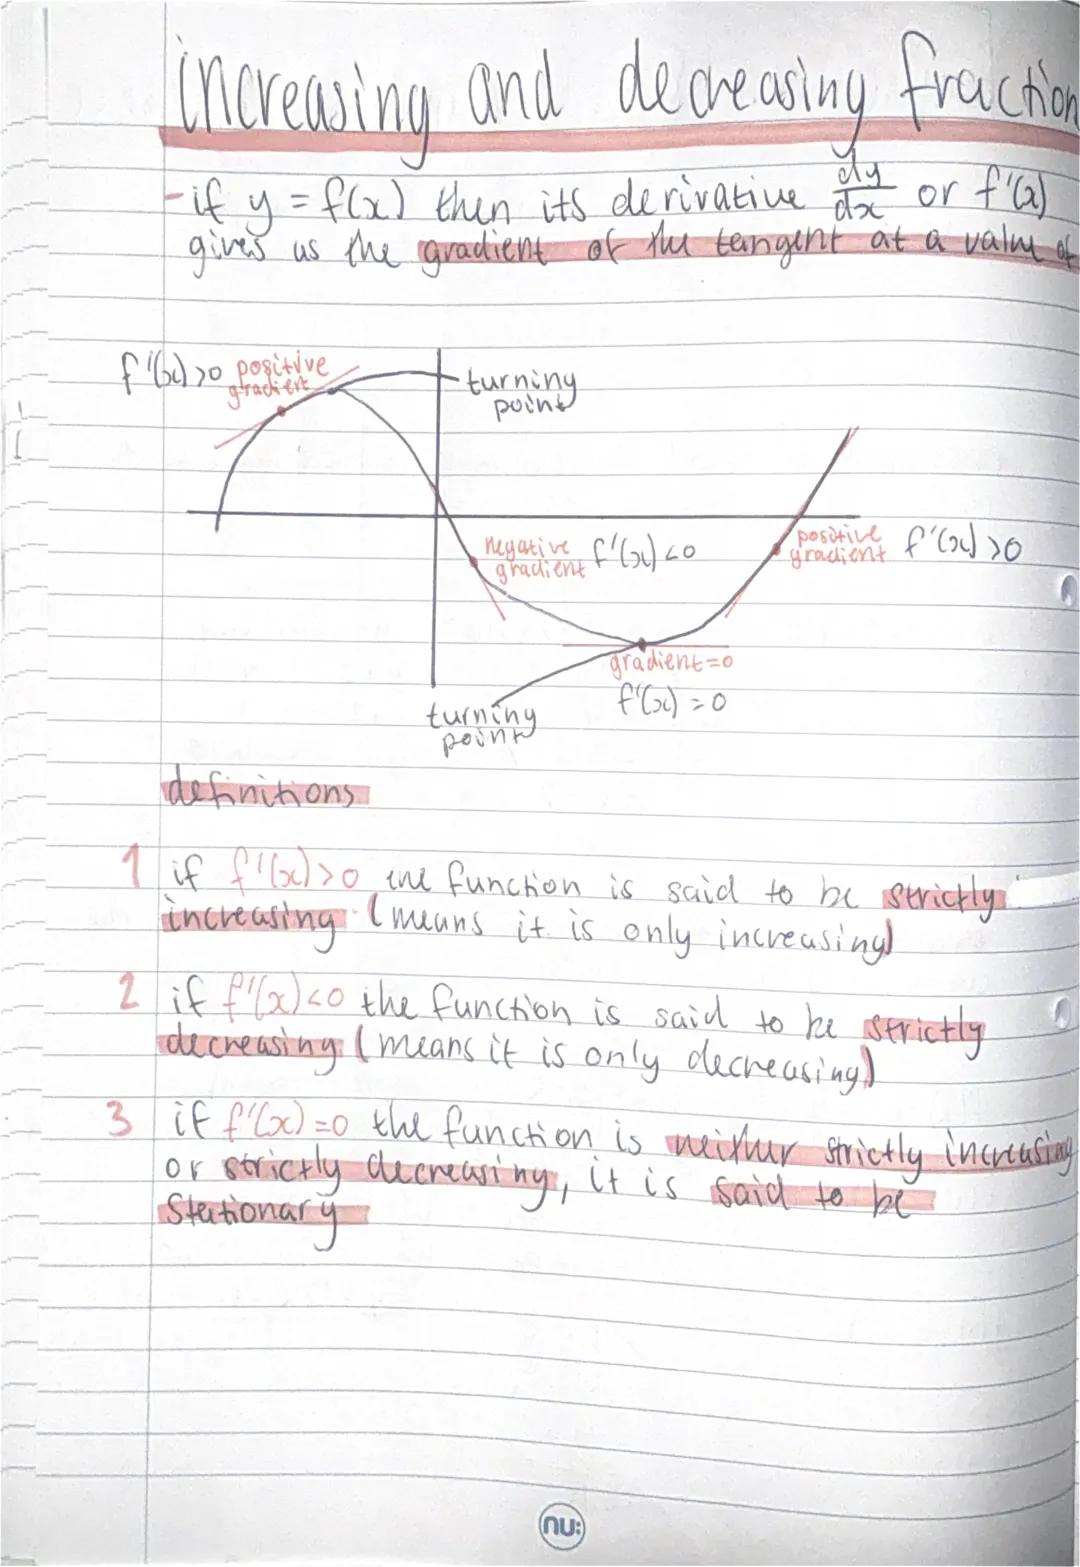 increasing and decreasing fraction
-if y = f(x) then its derivative dy/dx or f'(x)
gives us the gradient of the tangent at a value of
f'(x)>0 positive
gradient
turning
point
negative
gradient f'(x)<0
positive
gradient f'(x)>0
gradient=0
f'(x)=0
turning
point
definitions
1 if f'(x)>0 the function is said to be strictly
increasing (means it is only increasing)
2 if f'(x)<0 the function is said to be strictly
decreasing (means it is only decreasing)
3 if f'(x)=0 the function is neither strictly increasing
or strictly decreasing, it is said to be
stationary
nu: